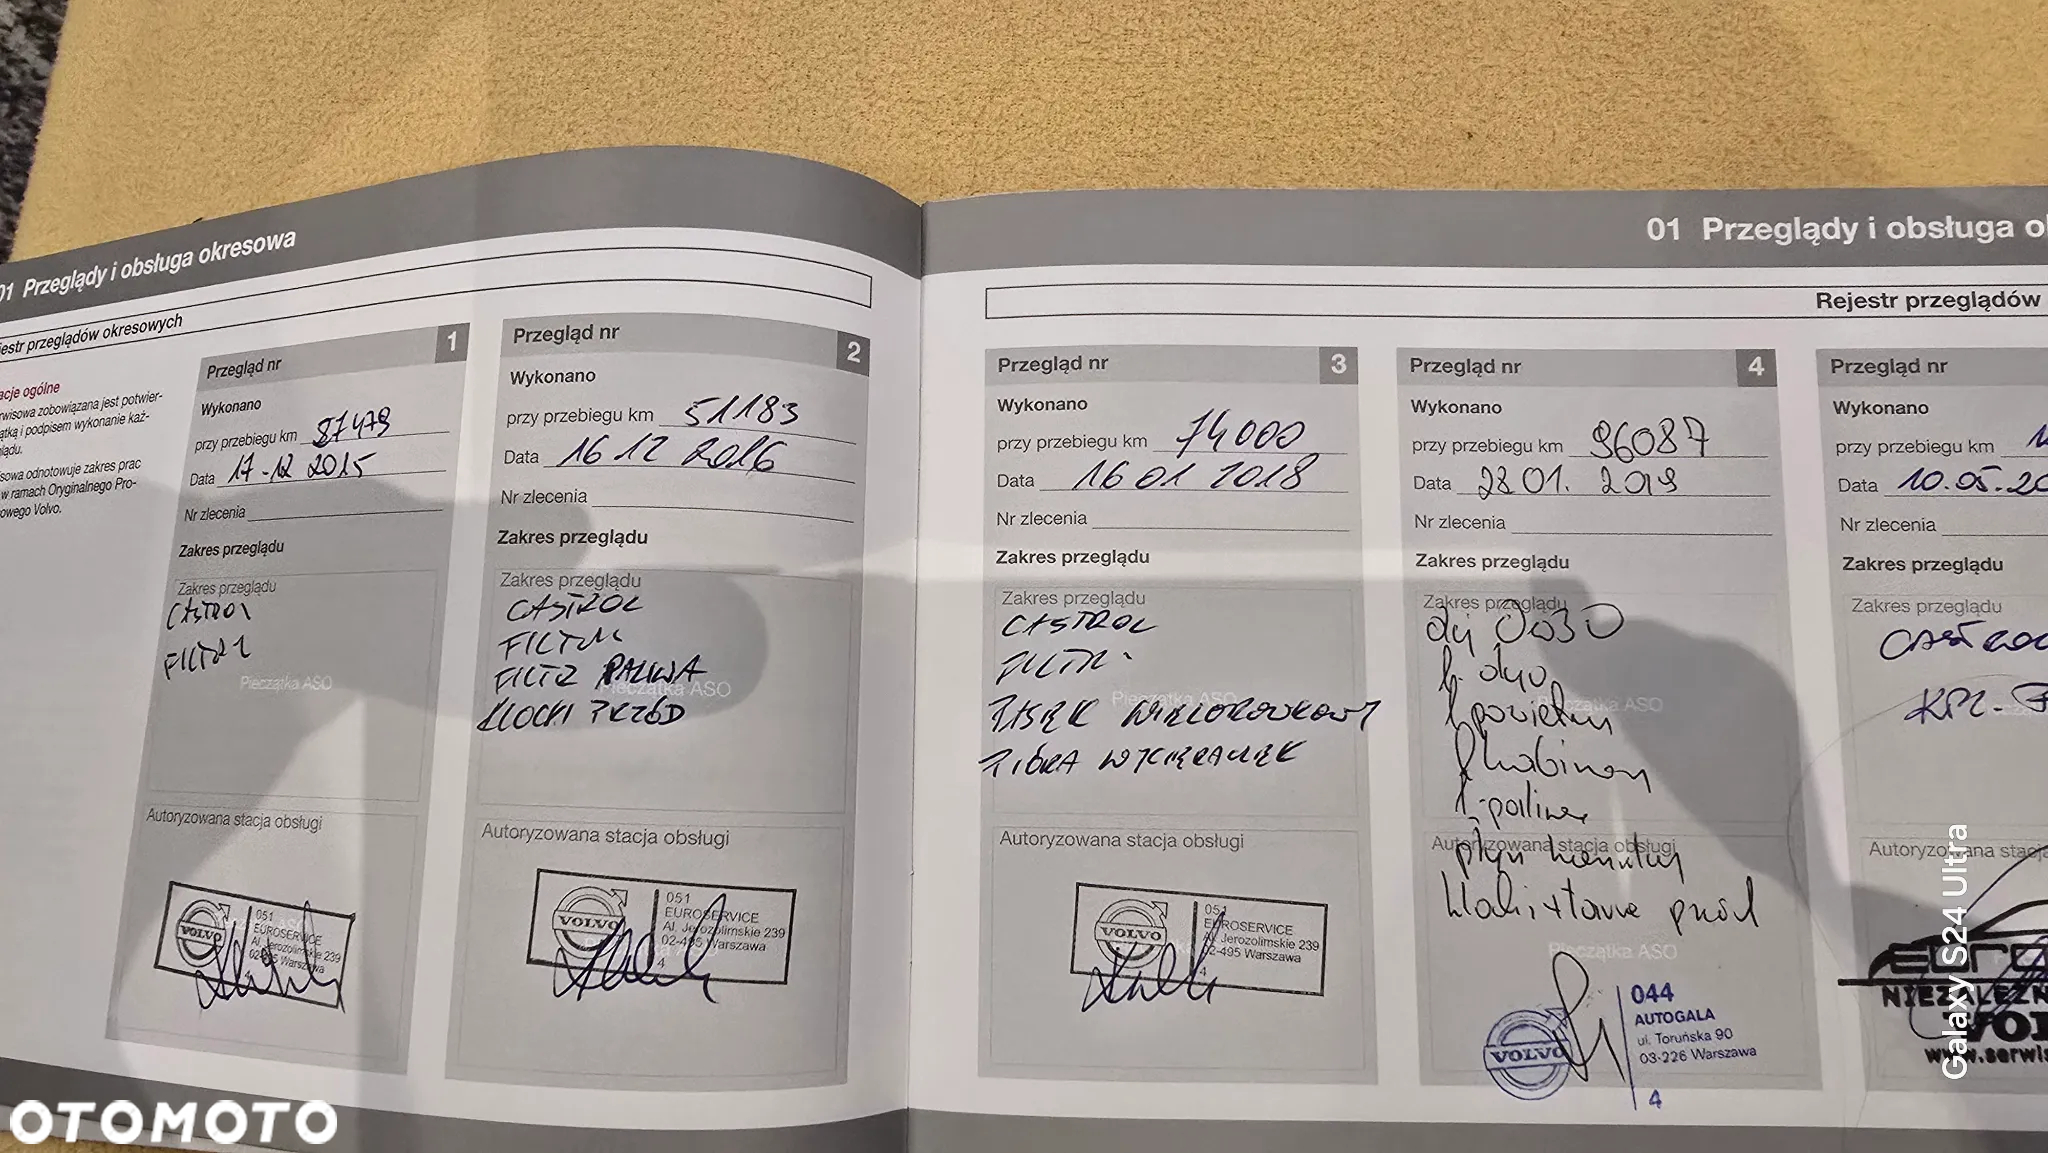 01 Przeglądy i obsługa okresowa
estr przeglądów okresowych
acje ogólne
rwisowa zobowiązana jest potwier-
ątką i podpisem wykonanie każ-
lądu.
sowa odnotowuje zakres prac
w ramach Oryginalnego Pro-
owego Volvo.
Przegląd nr 1
Wykonano
przy przebiegu km
Data 17-12 2015
Nr zlecenia
Zakres przeglądu
Zakres przeglądu
CASTROL
FILTRY
Pieczątka ASO
Autoryzowana stacja obsługi
VOLVO
051
EUROSERVICE
Al. Jerozolimskie 239
02-495 Warszawa
4
Przegląd nr 2
Wykonano
przy przebiegu km 51183
Data 16 12 2016
Nr zlecenia
Zakres przeglądu
Zakres przeglądu
CASTROL
FILTRY
FILTR PALIWA
Pieczątka ASO
KLOCKI PRZÓD
Autoryzowana stacja obsługi
VOLVO
051
EUROSERVICE
Al. Jerozolimskie 239
02-495 Warszawa
4
01 Przeglądy i obsługa ok
Rejestr przeglądów
Przegląd nr 3
Wykonano
przy przebiegu km 74000
Data 16 01 2018
Nr zlecenia
Zakres przeglądu
Zakres przeglądu
CASTROL
FILTRY
Pieczątka ASO
PASEK WIELOROWKOWY
PIÓRA WYCIERACZEK
Autoryzowana stacja obsługi
VOLVO
051
EUROSERVICE
Al. Jerozolimskie 239
02-495 Warszawa
4
Przegląd nr 4
Wykonano
przy przebiegu km 96087
Data 28 01. 2019
Nr zlecenia
Zakres przeglądu
Zakres przeglądu
olej 0W30
f. oleju
Pieczątka ASO
f. powietrza
f. kabinowy
f. paliwa
Autoryzowana stacja obsługi
płyn hamulcowy
klocki + tarcze przód
Pieczątka ASO
VOLVO
044
AUTOGALA
ul. Toruńska 90
03-226 Warszawa
4
Przegląd nr
Wykonano
przy przebiegu km
Data 10.05.20
Nr zlecenia
Zakres przeglądu
Zakres przeglądu
CASTROL
KPL.
Autoryzowana stacja
EURO
NIEZALEŻN
VOL
www.serwis
Galaxy S24 Ultra
OTOMOTO